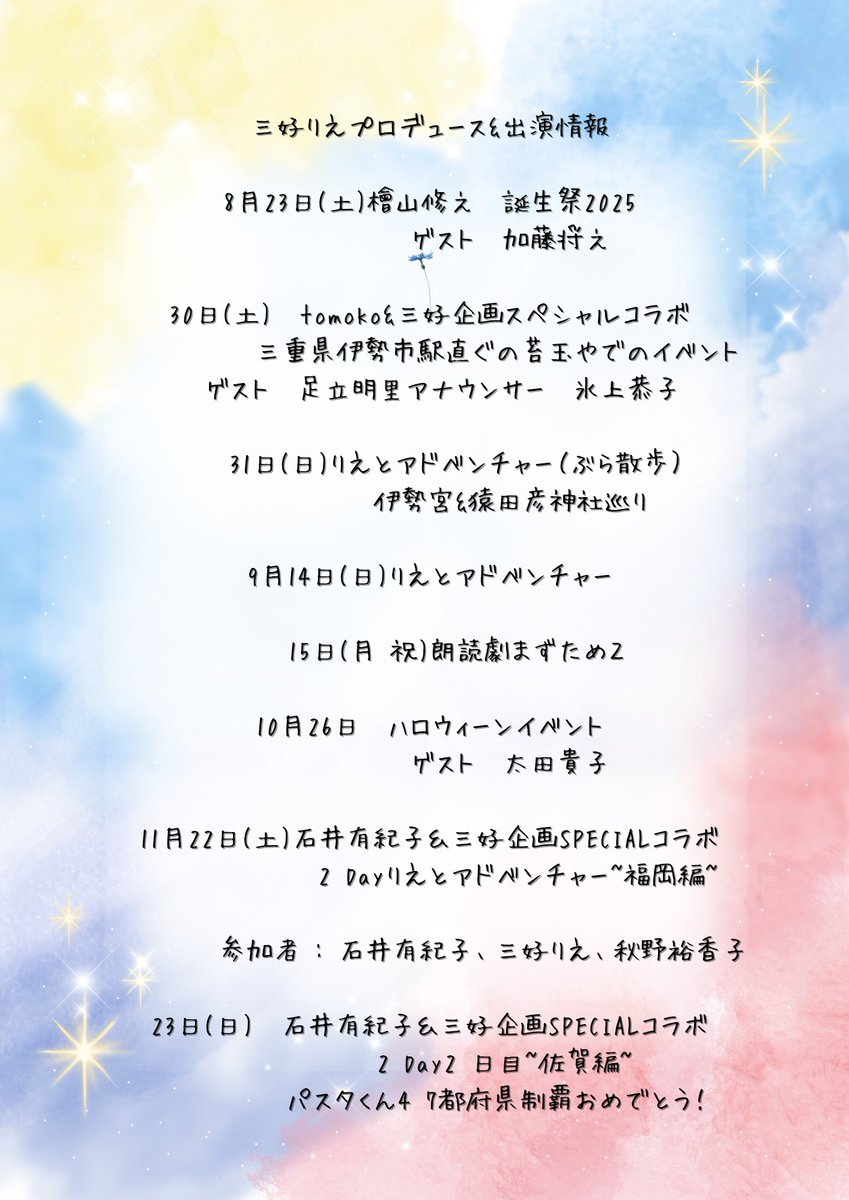 三好りえプロデュース&出演情報
8月23日(土)檜山修之　誕生祭2025
ゲスト　加藤将之
30日(土)　tomoko&三好企画スペシャルコラボ
三重県伊勢市駅直ぐの苔玉やでのイベント
ゲスト　足立明里アナウンサー　氷上恭子
31日(日)りえとアドベンチャー(ぶら散歩)
伊勢宮&猿田彦神社巡り
9月14日(日)りえとアドベンチャー
15日(月 祝)朗読劇まずため2
10月26日　ハロウィーンイベント
ゲスト　太田貴子
11月22日(土)石井有紀子&三好企画SPECIALコラボ
2 Dayりえとアドベンチャー~福岡編~
参加者 : 石井有紀子、三好りえ、秋野裕香子
23日(日)　石井有紀子&三好企画SPECIALコラボ
2 Day2 日目~佐賀編~
パスタくん4 7都府県制覇おめでとう!